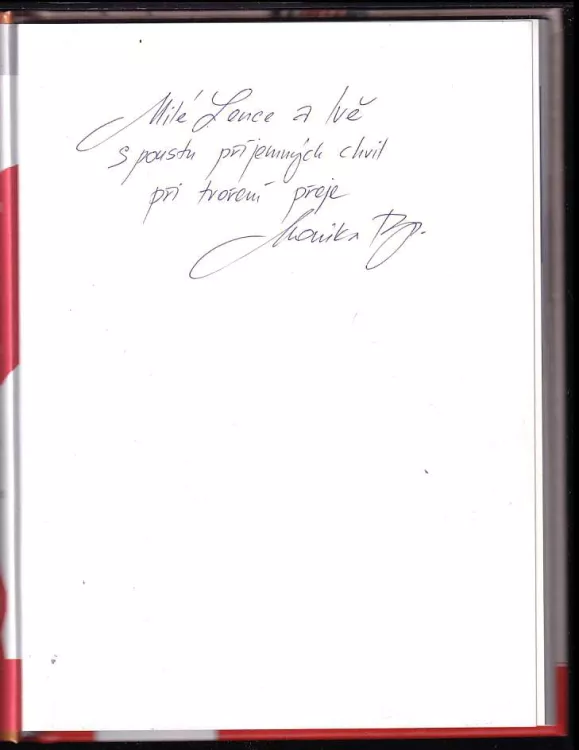 Milé Lence a Ivě
spoustu příjemných chvil
při tvoření přeje
Monika